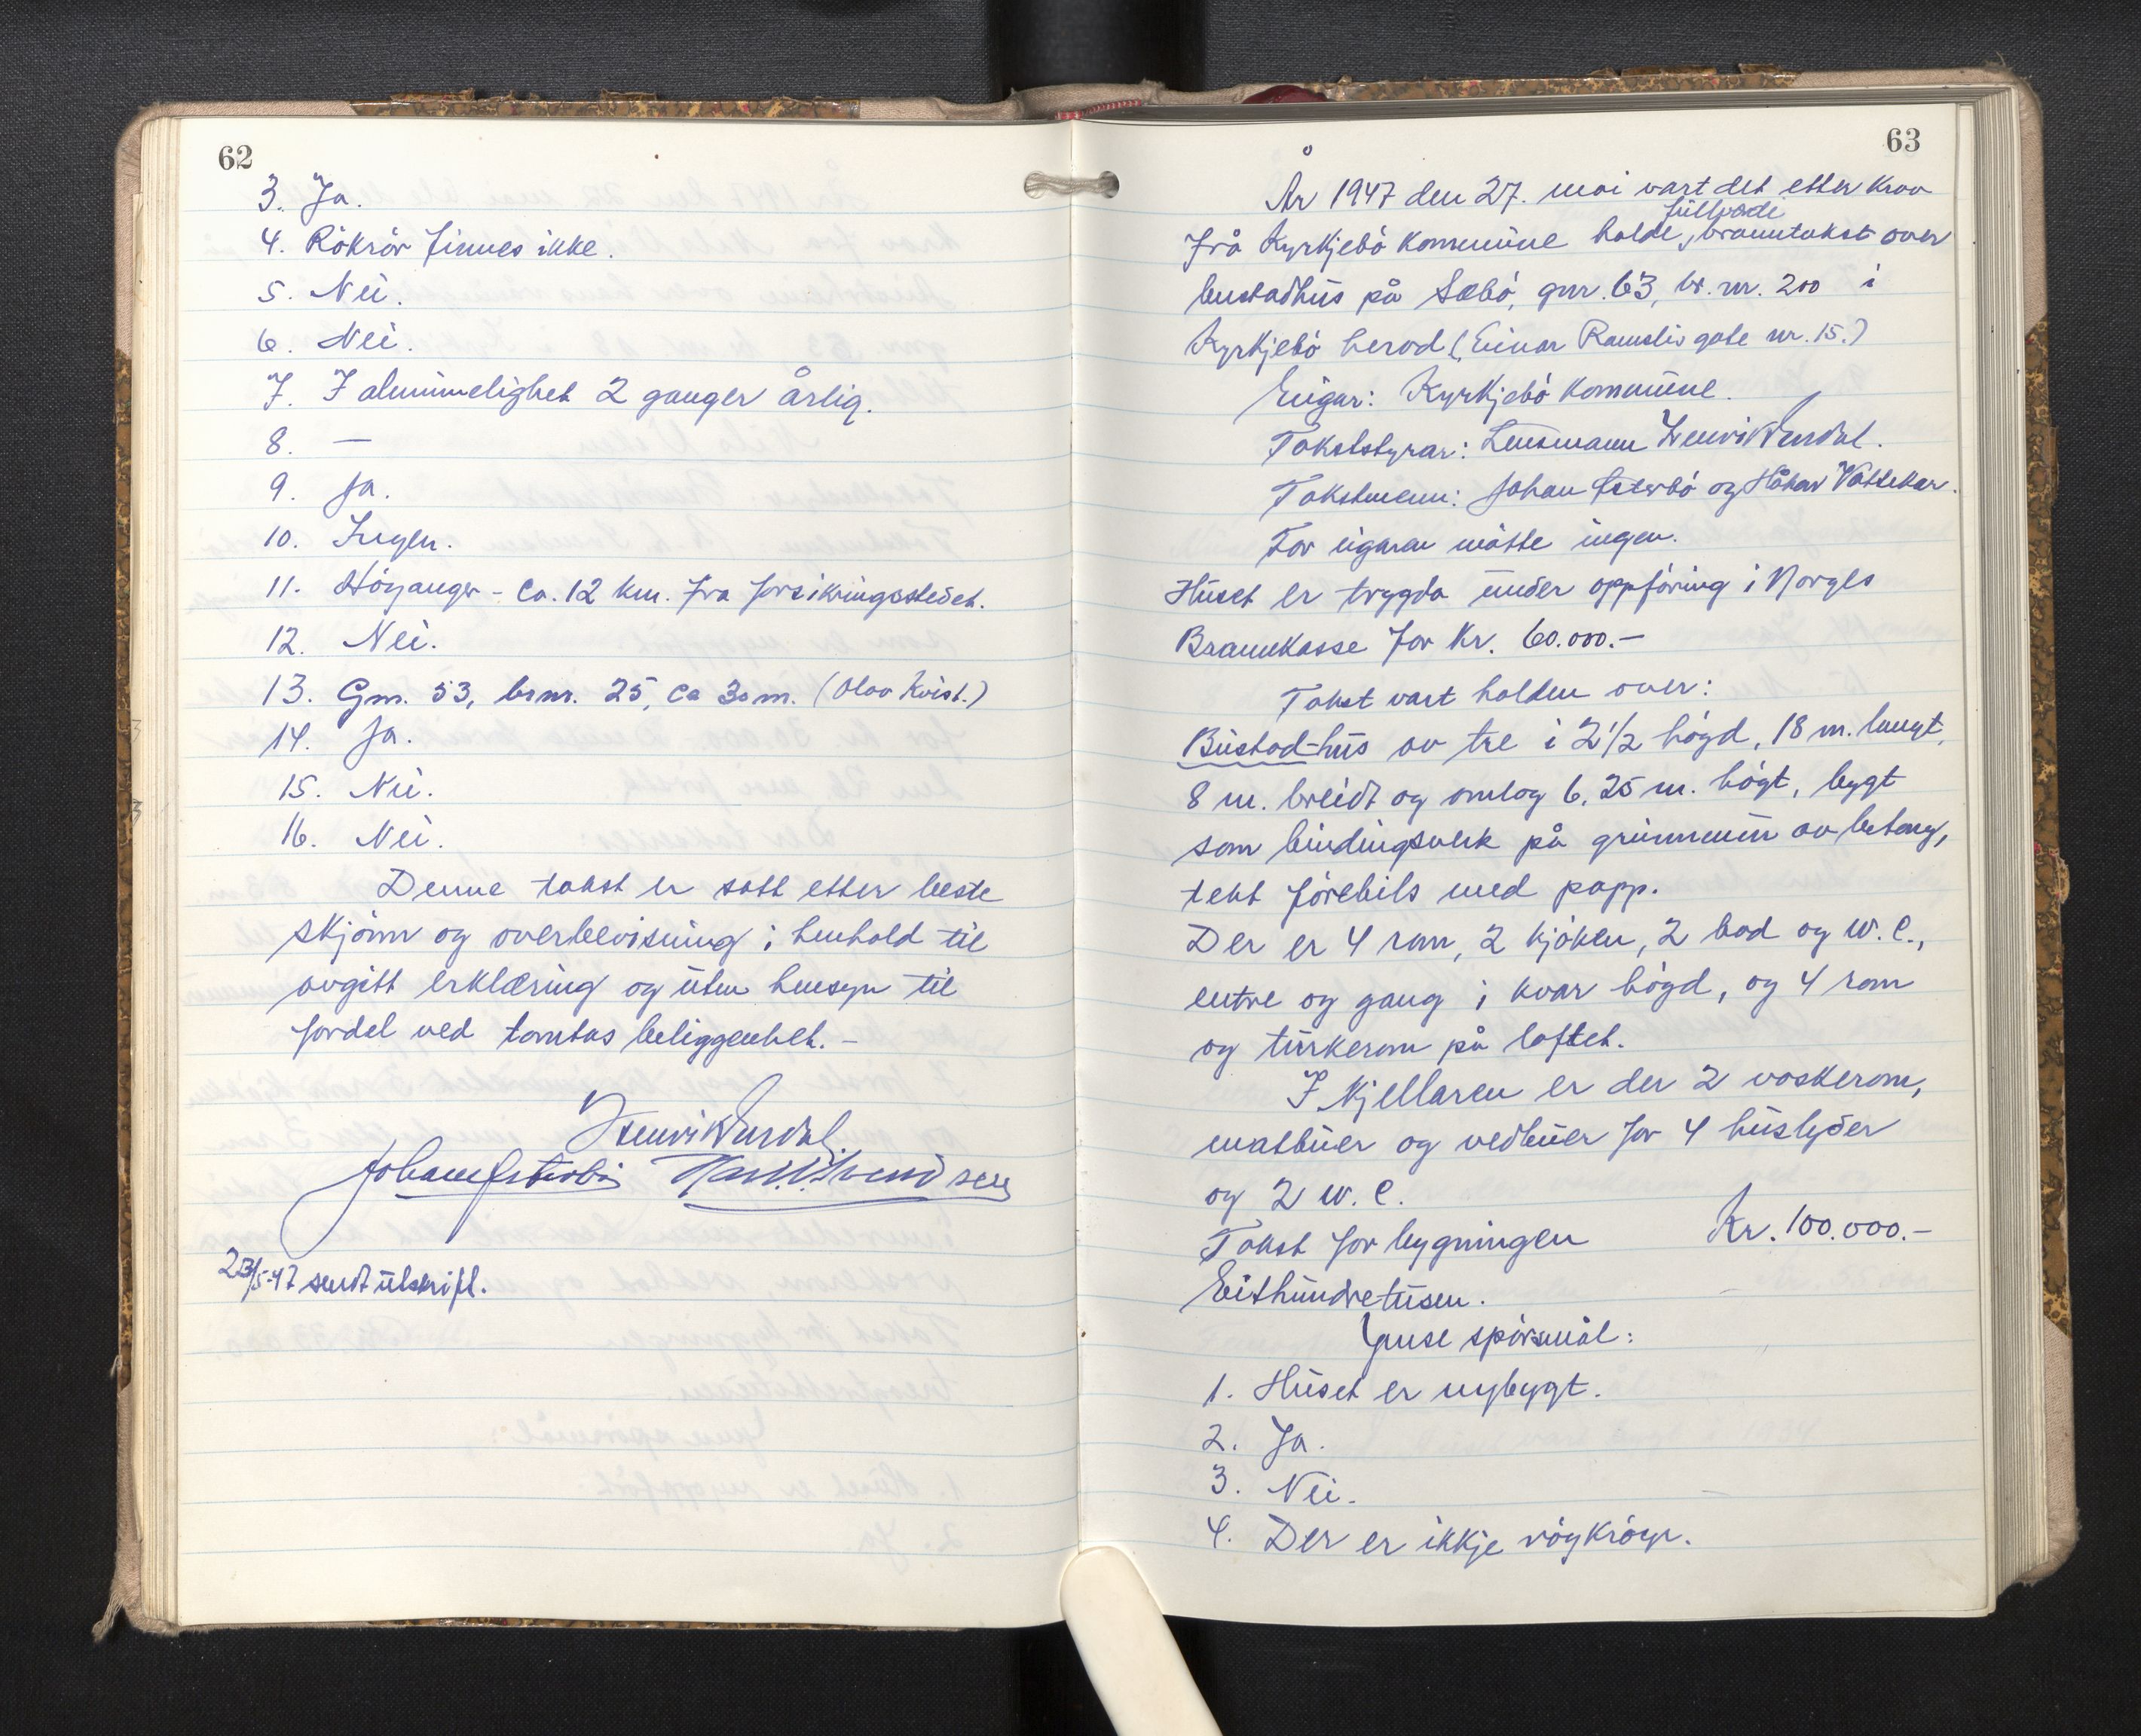 62
3. Ja.
4. Rökrör finnes ikke.
5. Nei.
6. Nei.
7. I alminnelighet 2 ganger årlig.
8. —
9. Ja.
10. Ingen.
11. Höyanger - ca. 12 km. fra forsikringsstedet.
12. Nei.
13. Gnr. 53, brnr. 25, ca 30 m. (Olav Kvist.)
14. Ja.
15. Nei.
16. Nei.
Denne takst er satt etter beste
skjönn og overbevisning i henhold til
avgitt erklæring og uten hensyn til
fordel ved tomtas beliggenhet. —
Henrik Hurdal
Johan Østerbö
23/5-47 sendt utskrift.
63
År 1947 den 27. mai vart det etter krav
frå Kyrkjebö kommune halde fullverdi branntakst over
bustadhus på Sæbö, gnr. 63, br. nr. 200 i
Kyrkjebö herad (Einar Ramslis gate nr. 15.)
Eigar: Kyrkjebö kommune.
Takststyrar: Lensmann Henrik Hurdal.
Takstmenn: Johan Østerbö og Håkon Våttekar.
For eigaren mötte ingen.
Huset er trygda under oppföring i Norges
Brannkasse for kr. 60.000.—
Takst vart halden over:
Bustad-hus av tre i 2 1/2 högd, 18 m. langt,
8 m. breidt og omlag 6,25 m. högt, bygt
som bindingsverk på grunnmur av betong,
tekt förebils med papp.
Der er 4 rom, 2 kjöken, 2 bad og w.c.,
entre og gang i kvar högd, og 4 rom
og turkerom på loftet.
I kjellaren er der 2 vaskerom,
matbuer og vedbuer for 4 huslyder
og 2 w.c.
Takst for bygningen Kr. 100.000.—
Eithundretusen.
Ymse spörsmål:
1. Huset er nybygt.
2. Ja.
3. Nei.
4. Der er ikkje röykröyr.